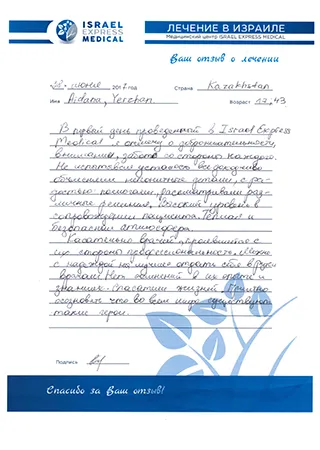 ISRAEL
EXPRESS
MEDICAL
ЛЕЧЕНИЕ В ИЗРАИЛЕ
Медицинский центр ISRAEL EXPRESS MEDICAL
Ваш отзыв о лечении
июня 2017 год Страна Kazakhstan
Имя Aidana, Yerchan Возраст 43
В первый день проведенный в Israel Express
Medical я о доброжелательности,
внимании, заботе со стороны каждого.
Не все доходчиво
с ра-
достью помогали, рассматривали раз-
личные решения. Высокий уровень в
сопровождении пациента. Теплая и
безопасная атмосфера.
Касательно врачей,
их стороны профессиональность. Можно
с надеждой на лучшее отдать себя в руки
врачам! Нет сомнений в их опыте и
знаниях. Спасатели жизней. Приятно
осознавать что во всем мире существуют
такие герои.
Подпись
Спасибо за Ваш отзыв!